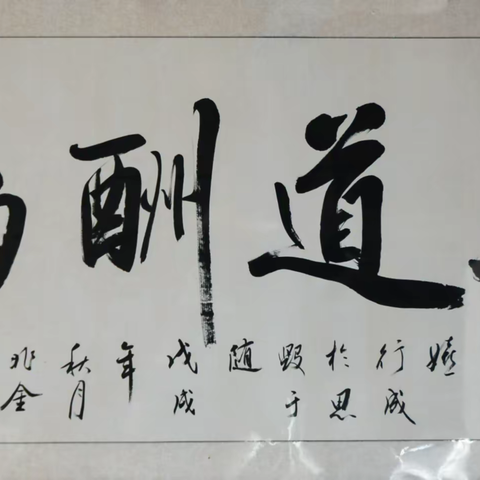 道酬
嬉
行成
於思
毁于
随
戊戌
年
秋月
金